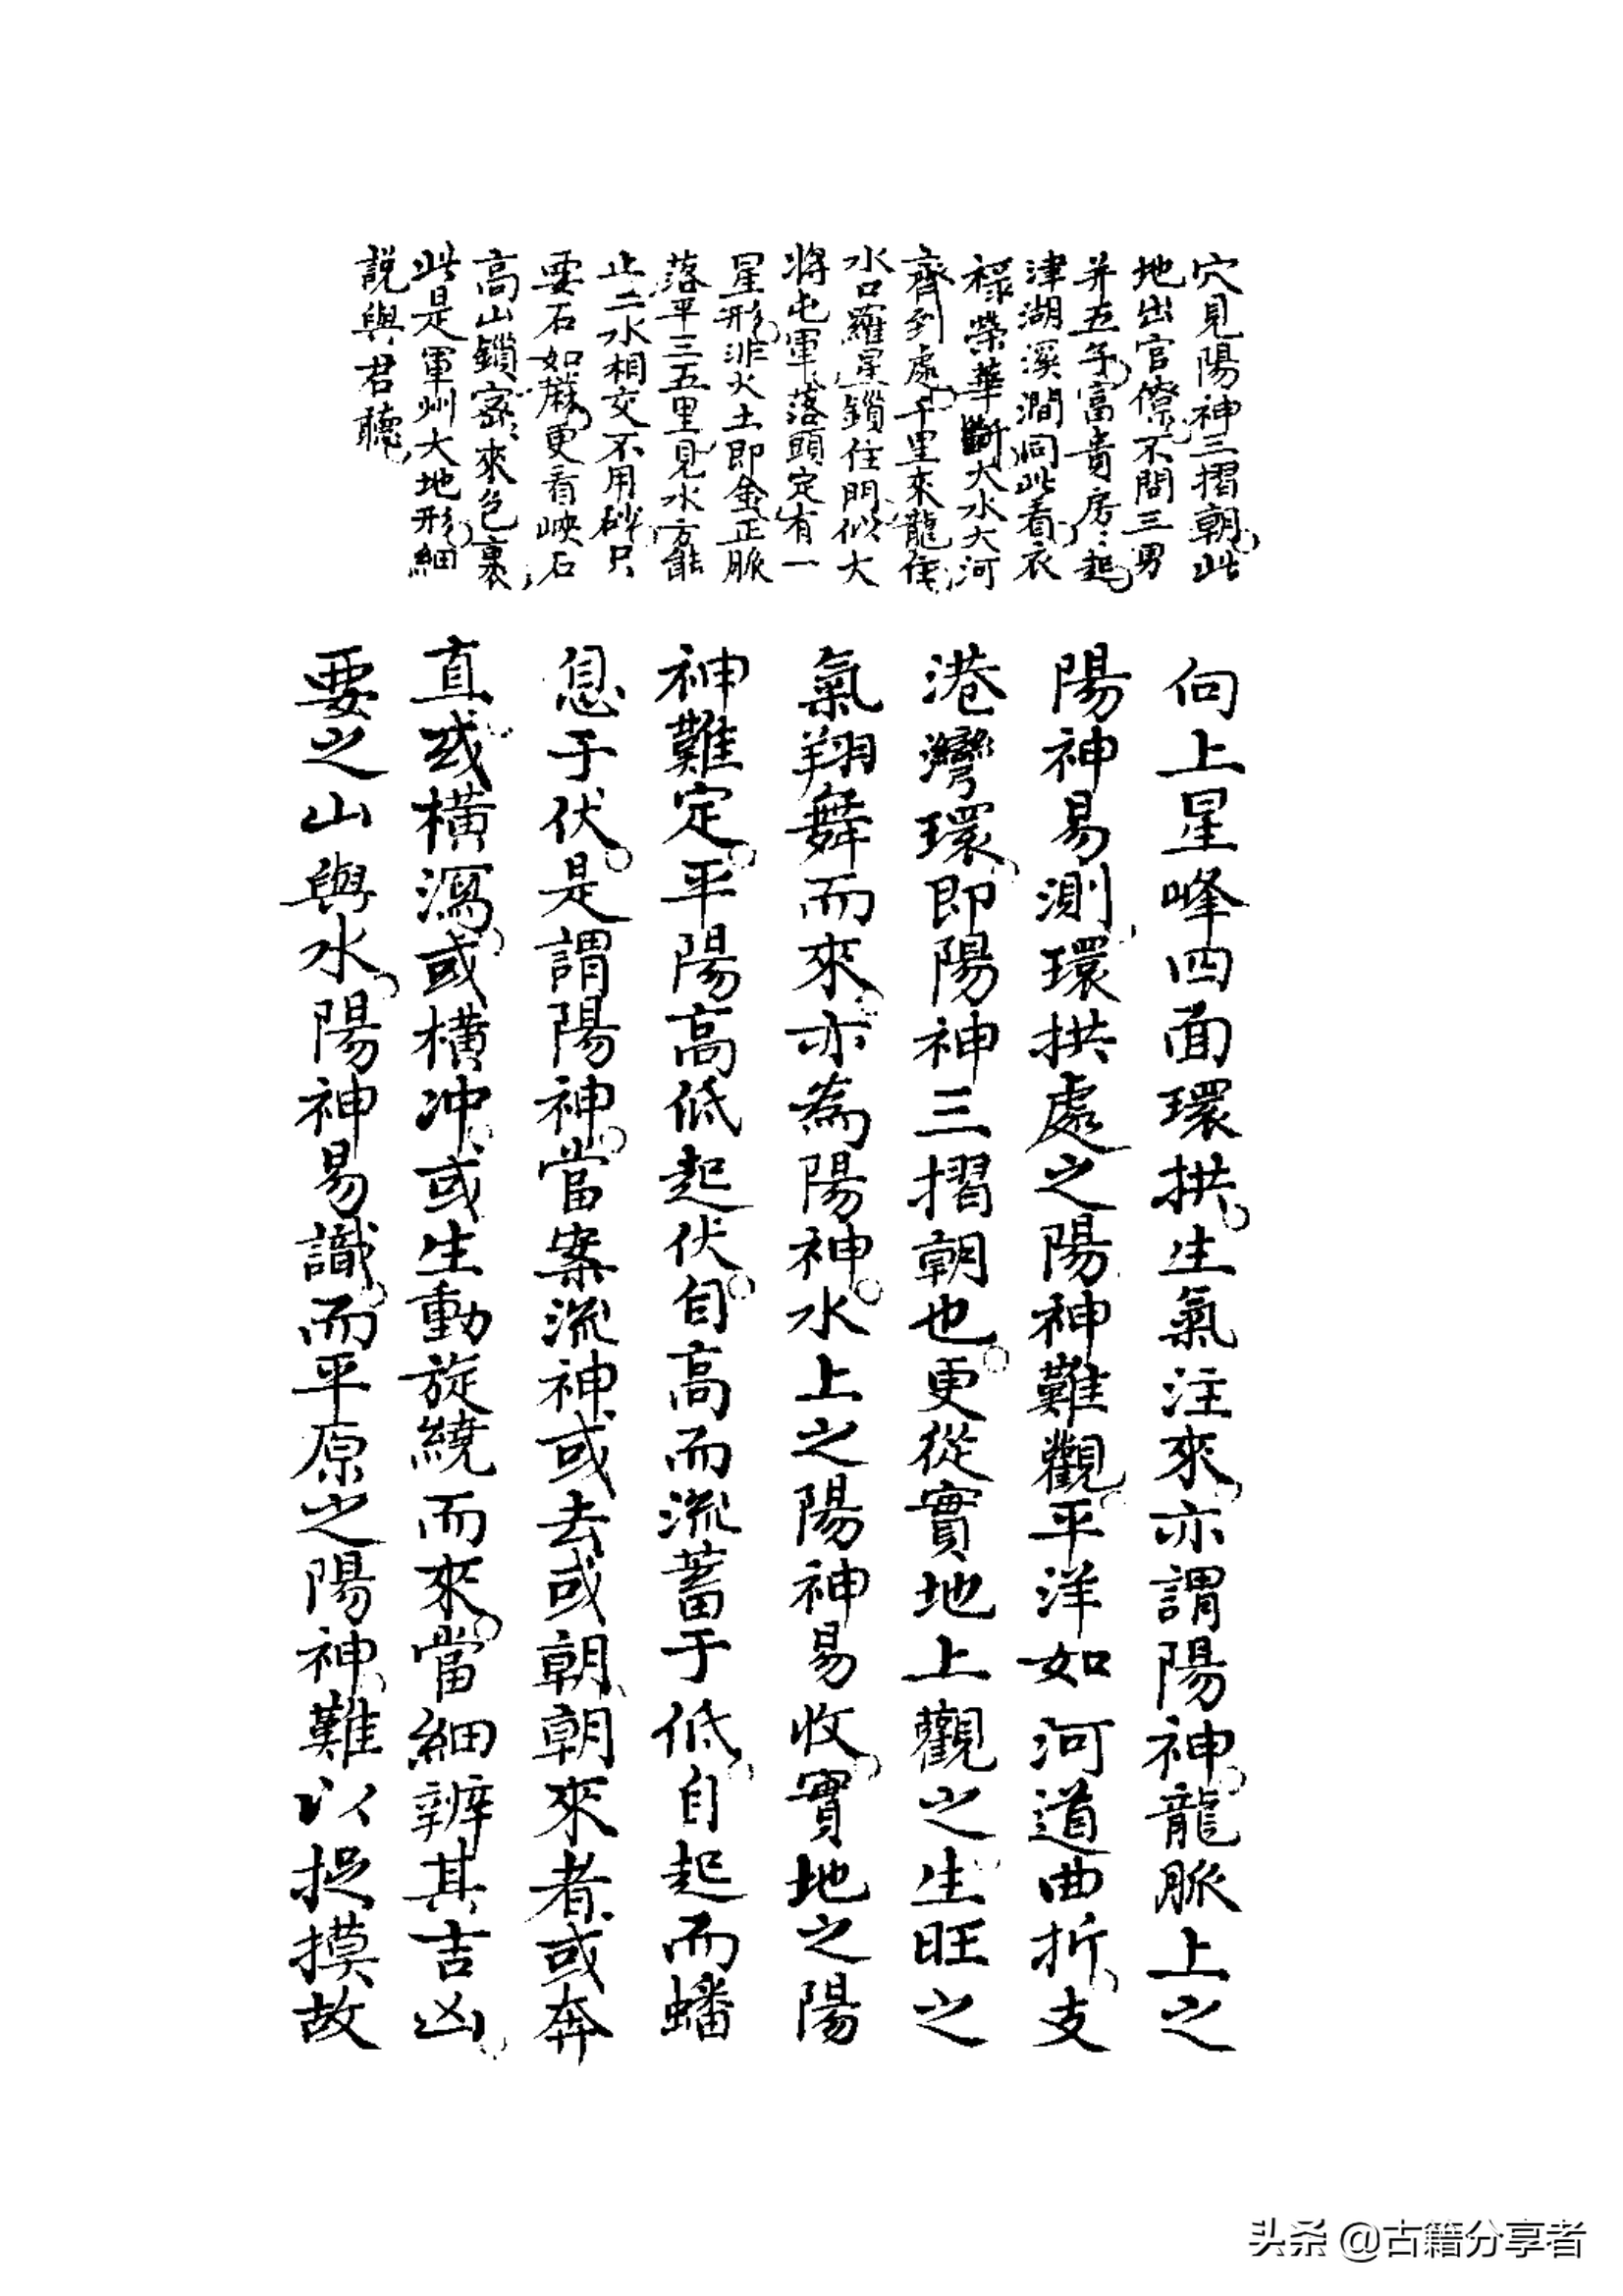 穴見陽神三摺朝此
地出官僚不問三男
并五子富貴房〻起
津湖溪澗同此看衣
祿榮華斷大水大河
齊到處千里來龍住
水口羅星鎖住門似大
將屯軍落頭定有一
星形非火土即金正脈
落平三五里見水方能
止二水相交不用砂只
要石如蔴更看峽石
高山鎖密來包裹
此是軍州大地形細
說與君聽
向上星峰四面環拱生氣注來亦謂陽神龍脈上之
陽神易測環拱處之陽神難觀平洋如河道曲折支
港灣環即陽神三摺朝也更從實地上觀之生旺之
氣翔舞而來亦為陽神水上之陽神易收實地之陽
神難定平陽高低起伏自高而流蓄于低自起而蟠
息于伏是謂陽神當案流神或去或朝朝來者或奔
直或橫瀉或橫冲或生動旋繞而來當細辨其吉凶
要之山與水陽神易識而平原之陽神難以捉摸故
头条 @古籍分享者